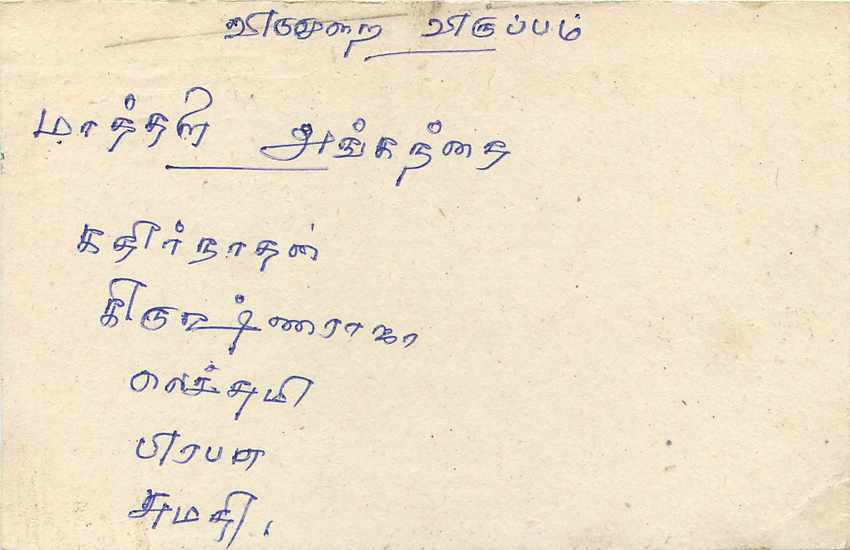 விடுமுறை விருப்பம்
மாத்தளை அங்கநந்தை
கதிர்நாதன்
கிருஷ்ணராஜா
லெக்சுமி
பிரபா
சுமதி.